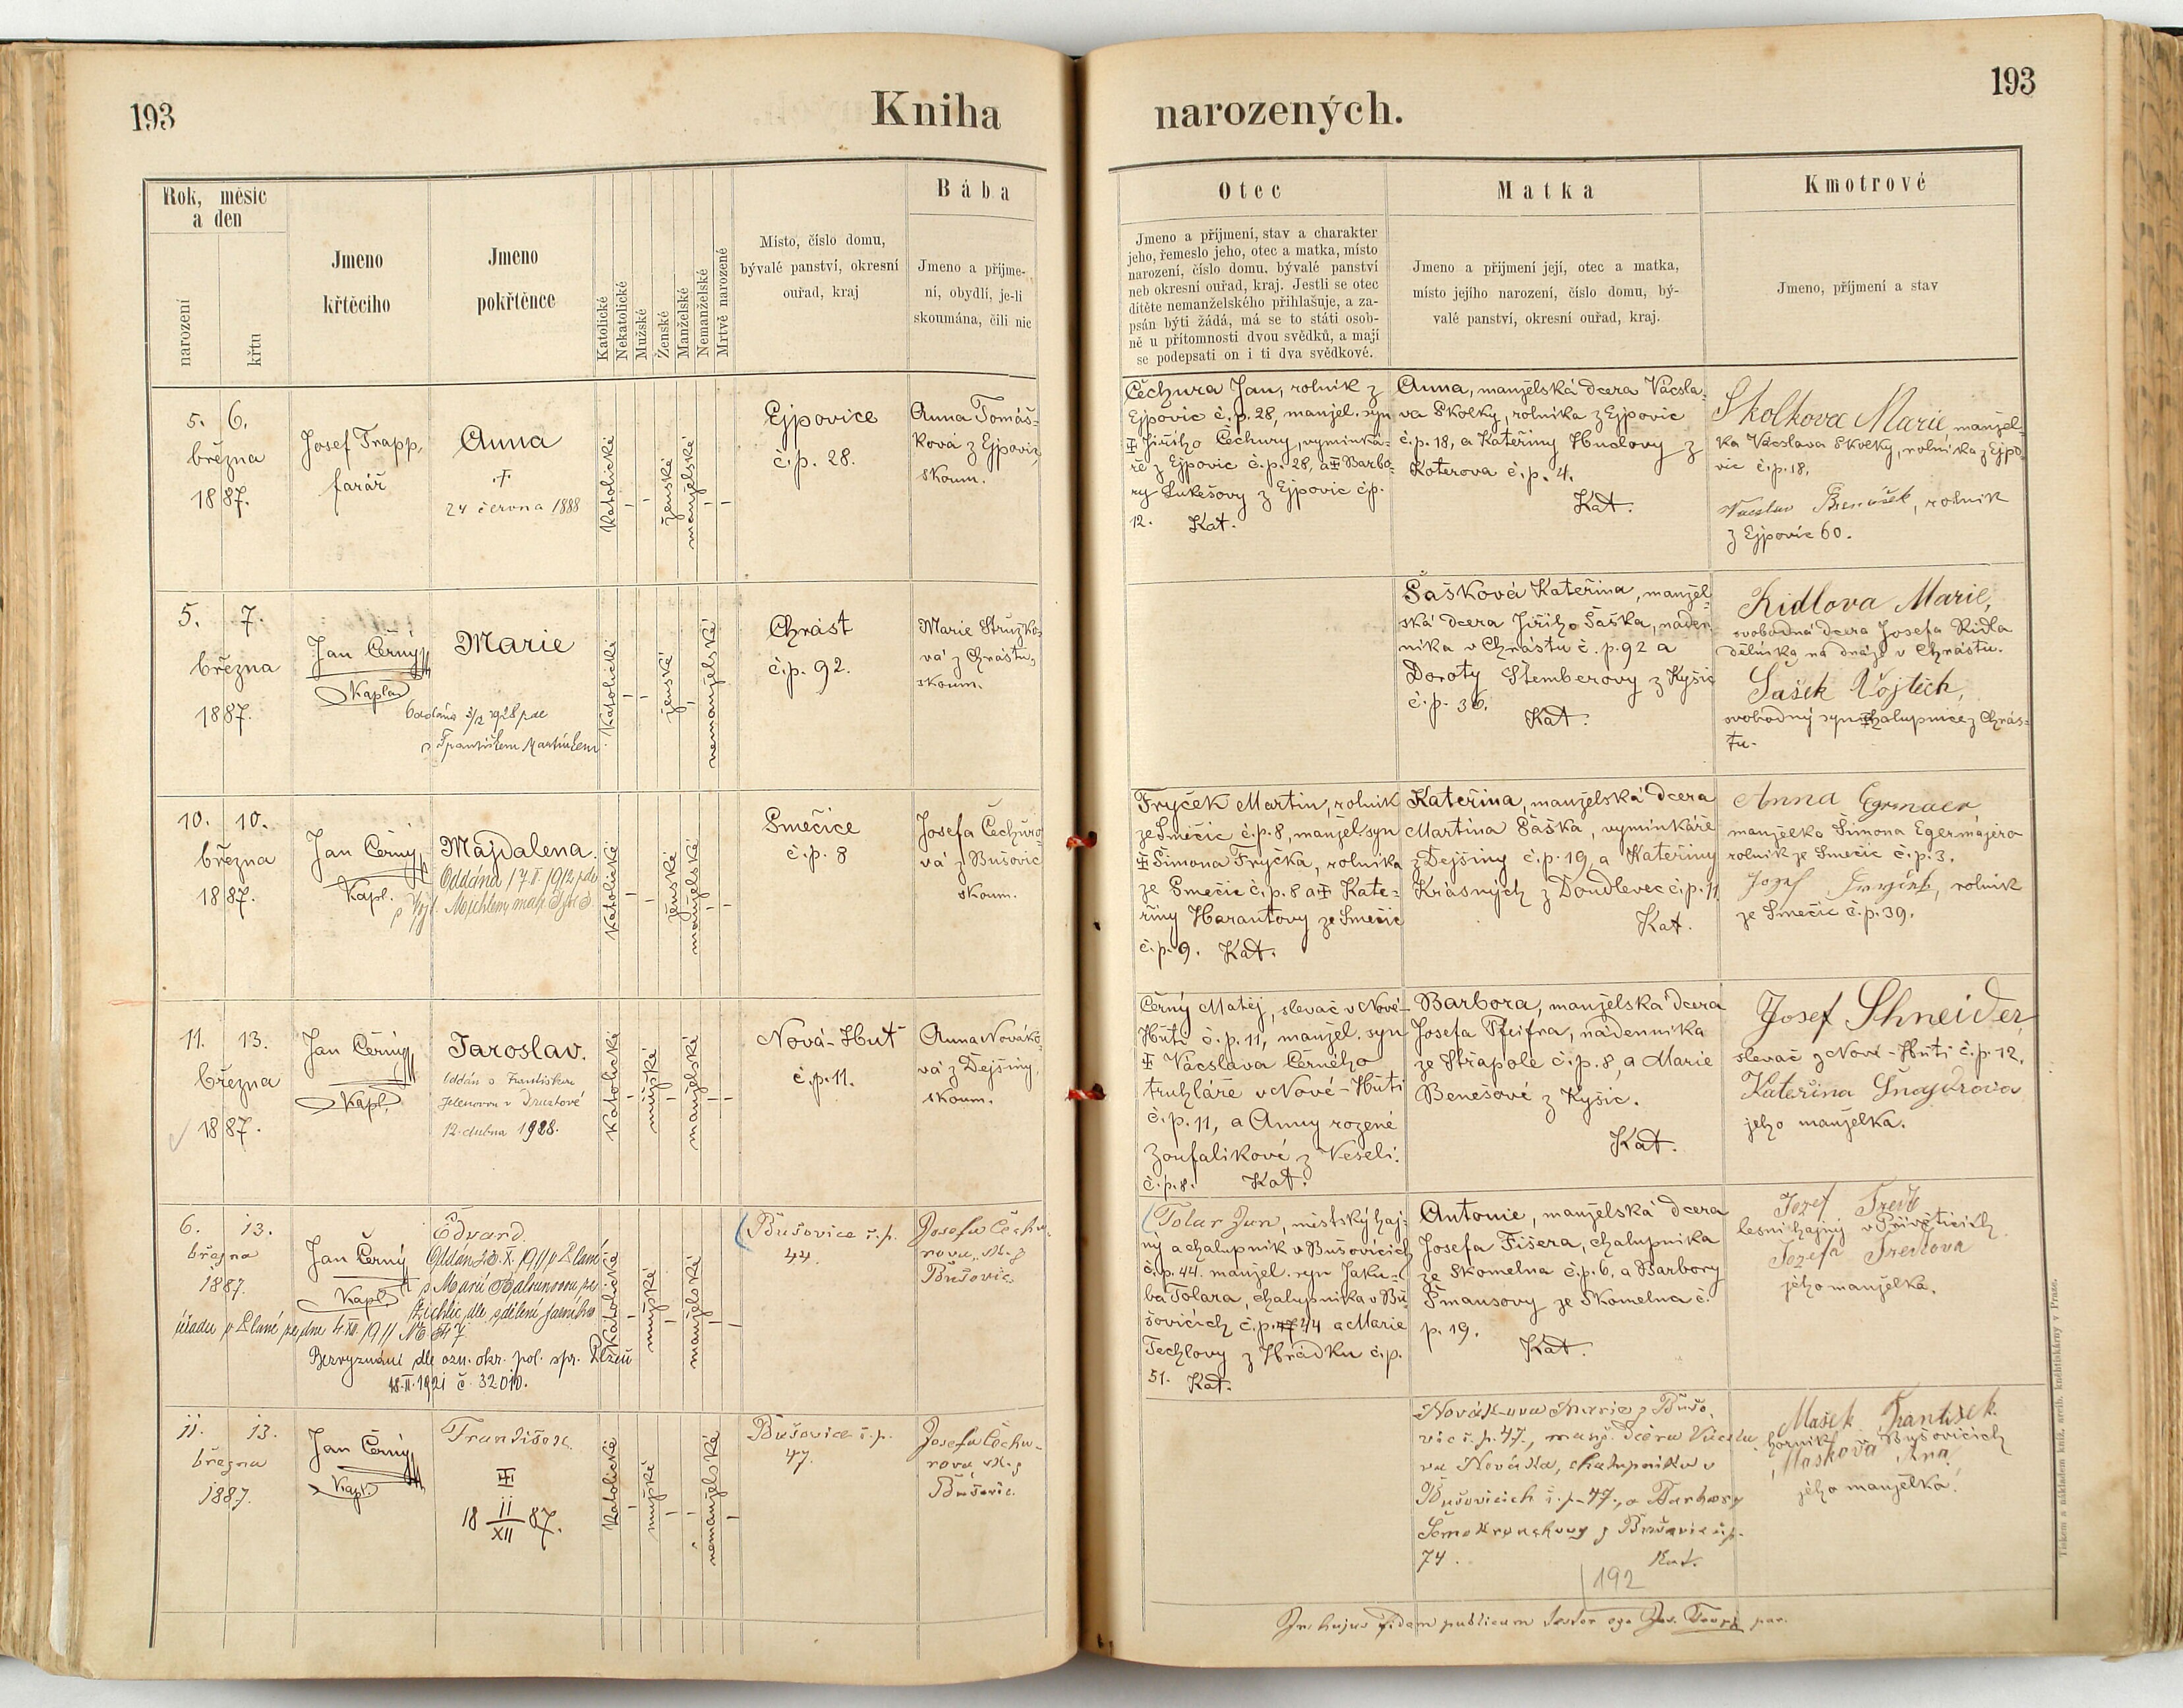 193
Kniha
narozených.
193
Rok, měsíc
a den
narození
křtu
Jmeno
křtěcího
Jmeno
pokřtěnce
Katolické
Nekatolické
Mužské
Ženské
Manželské
Nemanželské
Mrtvě narozené
Místo, číslo domu,
bývalé panství, okresní
ouřad, kraj
Bába
Jmeno a příjme-
ní, obydlí, je-li
skoumána, čili nic
Otec
Jmeno a příjmení, stav a charakter
jeho, řemeslo jeho, otec a matka, místo
narození, číslo domu, bývalé panství
neb okresní ouřad, kraj. Jestli se otec
dítěte nemanželského přihlašuje, a za-
psán býti žádá, má se to státi osob-
ně u přítomnosti dvou svědků, a mají
se podepsati on i ti dva svědkové.
Matka
Jmeno a příjmení její, otec a matka,
místo jejího narození, číslo domu, bý-
valé panství, okresní ouřad, kraj.
Kmotrové
Jmeno, příjmení a stav
5. 6.
března
1887.
Josef Trapp,
farář
Anna
†
24 června 1888
Katolické
ženské
manželské
Ejpovice
č.p. 28.
Anna Tomáš-
ková z Ejpovic,
skoum.
Čechura Jan, rolník z
Ejpovic č.p. 28, manžel. syn
† Jiřího Čechury, vyminká-
ře z Ejpovic č.p. 28, a † Barbo-
ry Lukešovy z Ejpovic čp.
12. Kat.
Anna, manželská dcera Vácsla-
va Skolky, rolníka z Ejpovic
č.p. 18, a Kateřiny Hudlovy z
Koterova č.p. 4.
Kat.
Skolkova Marie, manžel-
ka Václava Skolky, rolníka z Ejpo-
vic č.p. 18.
Vacslav, rolník
z Ejpovic 60.
5. 7.
března
1887.
Jan Černý
Kaplan
Marie
Oddána 1928
s Františkem
Katolické
ženské
nemanželské
Chrást
č.p. 92.
Marie Stružko-
vá z Chrástu,
skoum.
Šašková Kateřina, manžel-
ská dcera Jiřího Šaška, náden-
níka v Chrástu č.p. 92 a
Doroty Štemberovy z Kyšic
č.p. 36.
Kat.
Ridlova Marie,
svobodná dcera Josefa Ridla
dělníka na dráze v Chrástu.
Sašek Vojtěch,
svobodný syn chalupnice z Chrás-
tu.
10. 10.
března
1887.
Jan Černý
Kapl.
Majdalena.
Oddána 17. II. 1912
Katolické
ženské
manželské
Smečice
č.p. 8
Josefa Čechuro-
vá z Bušovic
skoum.
Fryček Martin, rolník
ze Smečic č.p. 8, manžel. syn
† Šimona Fryčka, rolníka
ze Smečic č.p. 8 a † Kate-
řiny Harantovy ze Smečic
č.p. 9. Kat.
Kateřina, manželská dcera
Martina Šaška, vyminkáře
z Dejšiny č.p. 19, a Kateřiny
Krásných z Doudlevec č.p. 11
Kat.
Anna
manželka Šimona Egermajera
rolník ze Smečic č.p. 3.
Jozef, rolník
ze Smečic č.p. 39.
11. 13.
března
1887.
Jan Černý
Kapl.
Jaroslav.
Oddán s Františkou
Jelenovou v Druztové
12. dubna 1928.
Katolické
mužské
manželské
Nová-Huť
č.p. 11.
Anna Nováko-
vá z Dejšiny,
skoum.
Černý Matěj, slevač v Nové-
Huti č.p. 11, manžel. syn
† Vácslava Černého
truhláře v Nové-Huti
č.p. 11, a Anny rozené
Zoufalíkové z Veselí.
č.p. 8. Kat.
Barbora, manželská dcera
Josefa Pfeifra, nádenníka
ze Střapole č.p. 8, a Marie
Benešové z Kyšic.
Kat.
Josef Shneider
slevač z Nové-Huti č.p. 12.
Kateřina Šnajdrova
jeho manželka.
6. 13.
března
1887.
Jan Černý
Kapl.
Edvard.
Oddán 1911 v Plané
s Marií
dle sdělení farního
úřadu v Plané ze dne 4. XII. 1911
Bezvyznání dle ozn. okr. pol. spr. Plzeň
18. II. 1921 č. 32010.
Katolické
mužské
manželské
Bušovice č.p.
44.
Josefa Čechu-
rova, sk. z
Bušovic
Tolar Jan, městský haj-
ný a chalupník v Bušovicích
č.p. 44. manžel. syn Jaku-
ba Tolara, chalupníka v Bu-
šovicích č.p. 44 a Marie
Techlovy z Hrádku čp.
51. Kat.
Antonie, manželská dcera
Josefa Fišera, chalupníka
ze Skomelna č.p. 6, a Barbory
Šmausovy ze Skomelna č.
p. 19.
Kat.
Jozef
lesní hajný v Přívěticích
Jozefa
jeho manželka.
11. 13.
března
1887.
Jan Černý
Kapl.
František.
†
18 11/XII 87.
Katolické
mužské
nemanželské
Bušovice č.p.
47.
Josefa Čechu-
rova sk. z
Bušovic.
Nováková Marie z Bušo-
vic č.p. 47., manž. dcera Václa-
va Nováka, chalupníka v
Bušovicích č.p. 47., a Barbory
z Bušovic č.p.
74. Kat.
Mašek František
horník Bušovicích
Maškova Ana
jeho manželka.
192
In hujus fidem publicam testor ego Jos. Trapp par.
Tiskem a nákladem kníž. arcib. knihtiskárny v Praze.